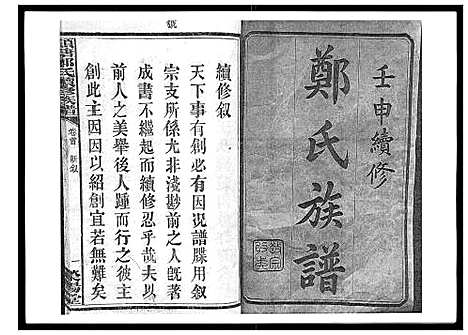 壬申續修
鄭氏族譜
續修叙
天下事有創必有因况譜牒用叙
宗支所係尤非淺尠前之人旣著
成書不繼起而續修忍乎哉夫以
前人之美舉後人躋而增之前人
創此主因因以紹創宜若無難矣
鄭氏續修族譜
卷首
新叙
一
滎陽堂